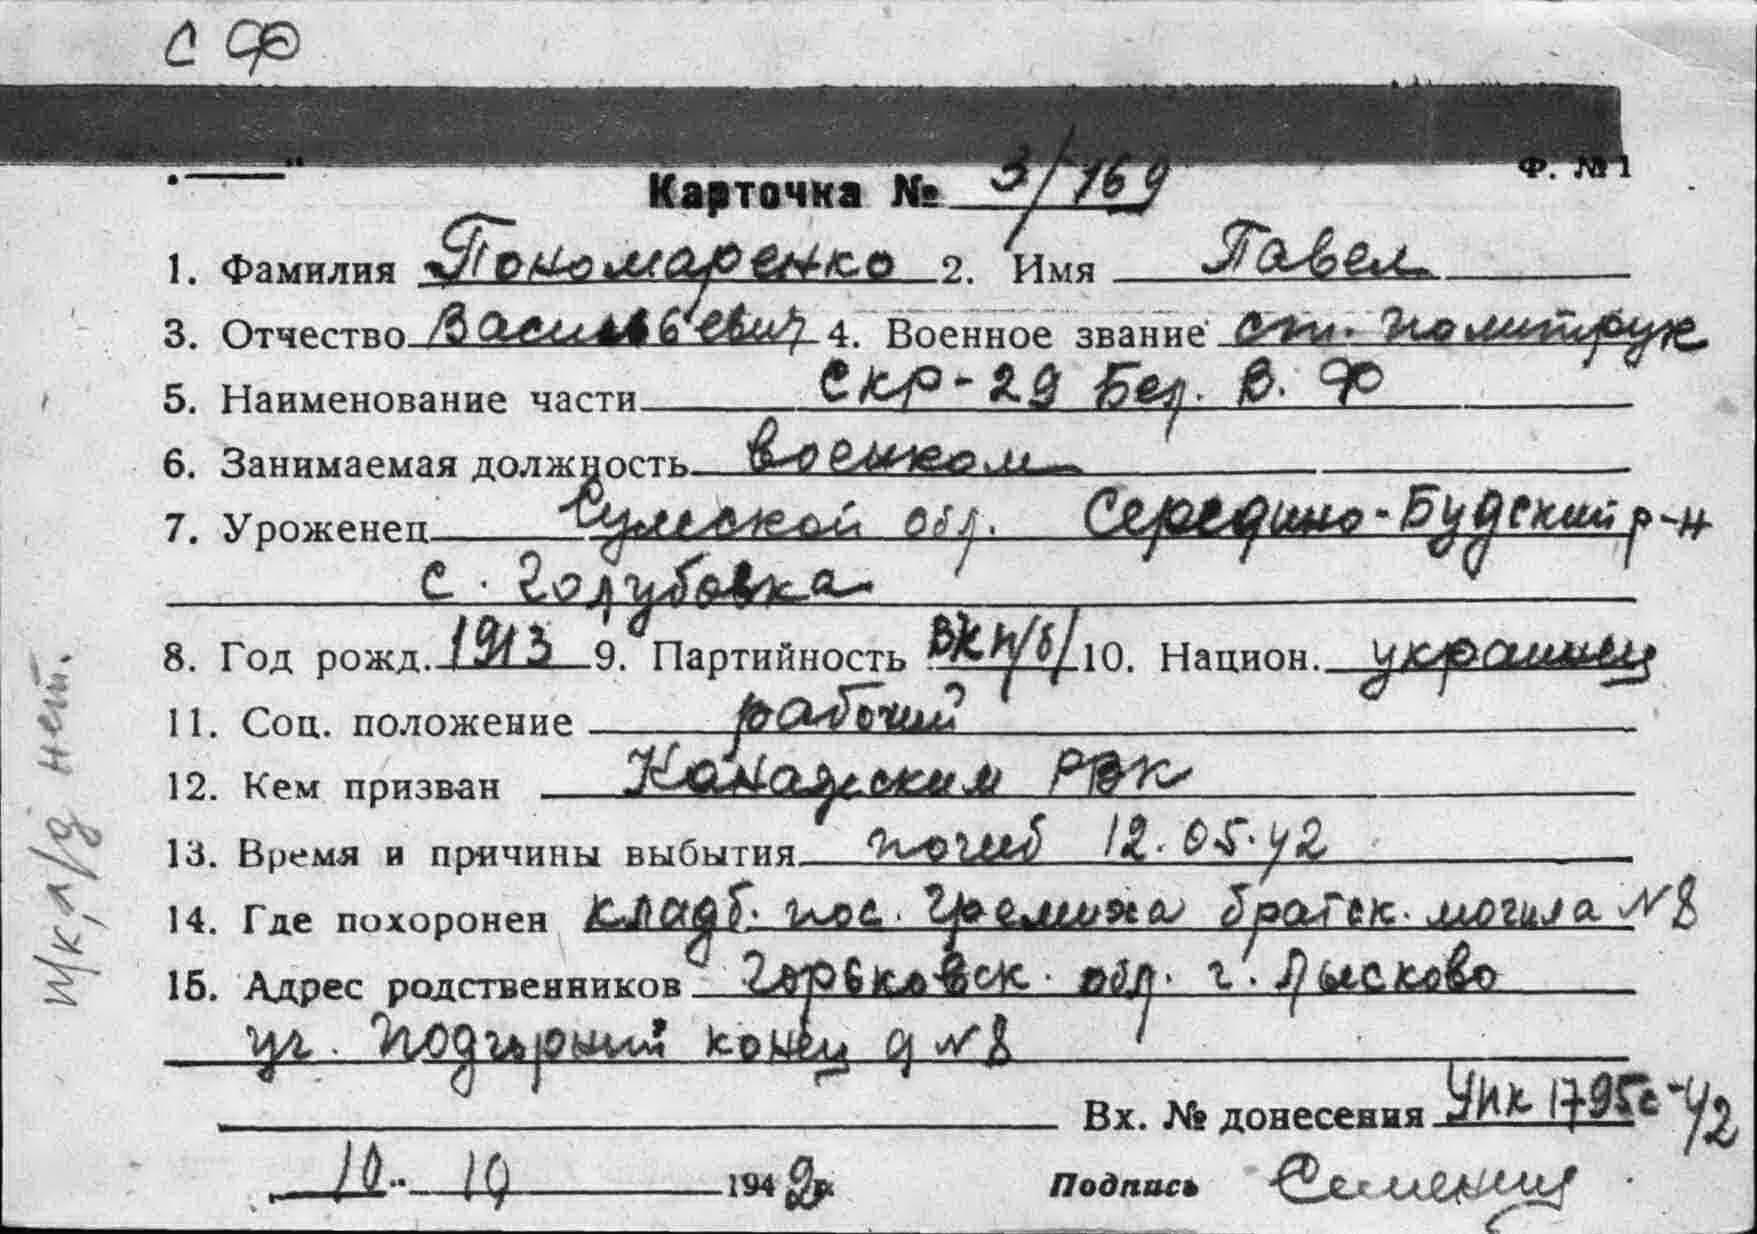 С Ф
Ф. №1
Карточка № 3/169
1. Фамилия Пономаренко 2. Имя Павел
3. Отчество Васильевич 4. Военное звание ст. политрук
5. Наименование части Скр-29 Бел. В. Ф
6. Занимаемая должность военком
7. Уроженец Сумской обл. Середино-Будский р-н
с. Голубовка
8. Год рожд. 1913 9. Партийность ВКП/б/ 10. Национ. украинец
11. Соц. положение рабочий
12. Кем призван Канадским РВК
13. Время и причины выбытия погиб 12.05.42
14. Где похоронен кладб. пос. Гремиха братск. могила №8
15. Адрес родственников Горьковск. обл. г. Лысково
ул. Подгорный конец д №8
Вх. № донесения УПК 1795с-42
10. 10 1942г.
Подпись
н/к, л/д нет.